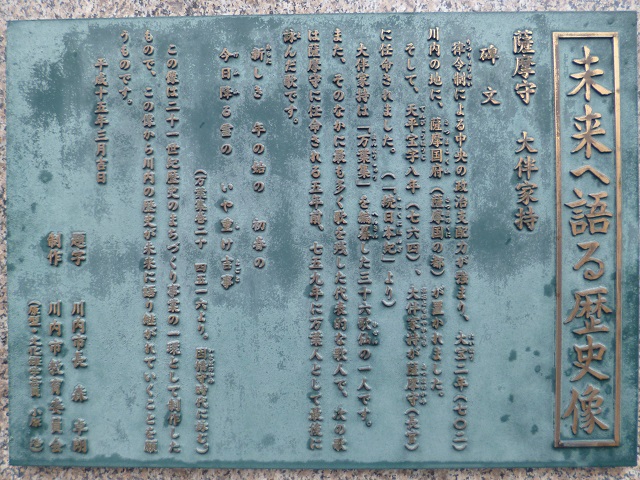 未来へ語る歴史像
薩摩守 大伴家持
碑文
律令制による中央の政治支配力が強まり、大宝二年(七〇二)
川内の地に、薩摩国府(薩摩国の都)が置かれました。
そして、天平宝字八年(七六四)、大伴家持が薩摩守(長官)
に任命されました。(「続日本紀」より)
大伴家持は「万葉集」を編纂した三十六歌仙の一人です。
また、そのなかに最も多く歌を残した代表的な歌人で、次の歌
は薩摩守に任命される五年前、七五九年に万葉人として最後に
詠んだ歌です。
新しき 年の始の 初春の
今日降る雪の いや重け吉事
(万葉集巻二十 四五一六より。因幡守時代に詠む)
この像は二十一世紀歴史のまちづくり事業の一環として制作した
もので、この像から川内の歴史が未来に語り継がれていくことを願
うものです。
平成十五年三月吉日
題字 川内市長 森 卓朗
制作 川内市教育委員会